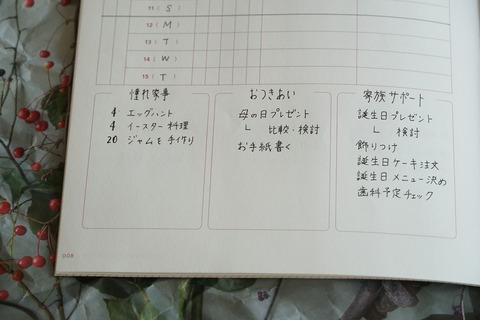 11 ( S )
12 ( M )
13 ( T )
14 ( W )
15 ( T )
憧れ家事
4 エッグハント
4 イースター料理
20 ジャムを手作り
おつきあい
母の日プレゼント
└ 比較・検討
お手紙書く
家族サポート
誕生日プレゼント
└ 検討
飾りつけ
誕生日ケーキ注文
誕生日メニュー決め
歯科予定チェック
008